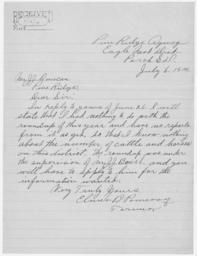 RECEIVED
Pine Ridge Agency
Eagle Nest Dist
Porch S.D.
July 6
Pine Ridge
Dear Sir:
In reply to yours of June 26 I will
state that I had nothing to do with the
roundup of this year and have no reports
from it as yet, so that I know nothing
about the number of cattle and horses
in this district. The roundup was under
the supervision of Mr. and you
will have to apply to him for the
information wanted.
Very Truly Yours
Farmer